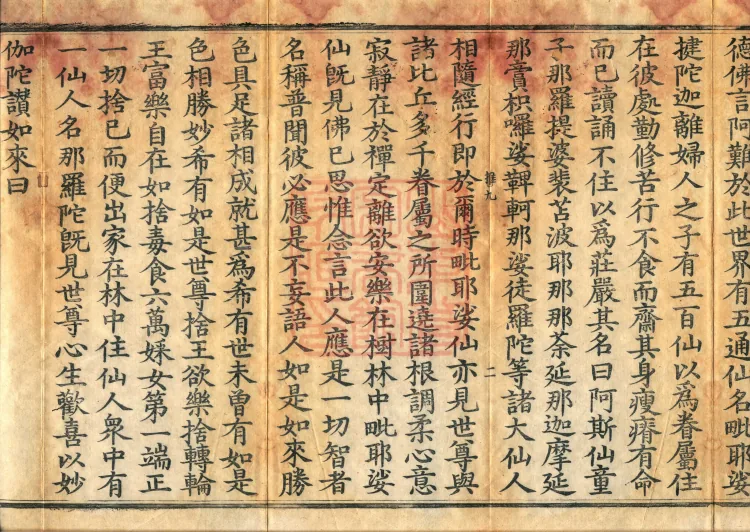 德佛言阿難於此世界有五通仙名毗耶娑
揵陀迦離婦人之子有五百仙以爲眷屬住
在彼處勤修苦行不食而齋其身瘦瘠有命
而已讀誦不住以爲莊嚴其名曰阿斯仙童
子那羅提婆裴苫波耶那那荼延那迦摩延
那賣枳囉娑鞞軻那娑徒羅陀等諸大仙人
推九
二
相隨經行即於爾時毗耶娑仙亦見世尊與
諸比丘多千眷屬之所圍遶諸根調柔心意
寂靜在於禪定離欲安樂在樹林中毗耶娑
仙旣見佛已思惟念言此人應是一切智者
名稱普聞彼必應是不妄語人如是如來勝
色具足諸相成就甚爲希有世未曾有如是
色相勝妙希有如是世尊捨王欲樂捨轉輪
王富樂自在如捨毒食六萬婇女第一端正
一切捨已而便出家在林中住仙人衆中有
一仙人名那羅陀旣見世尊心生歡喜以妙
伽陀讃如來曰